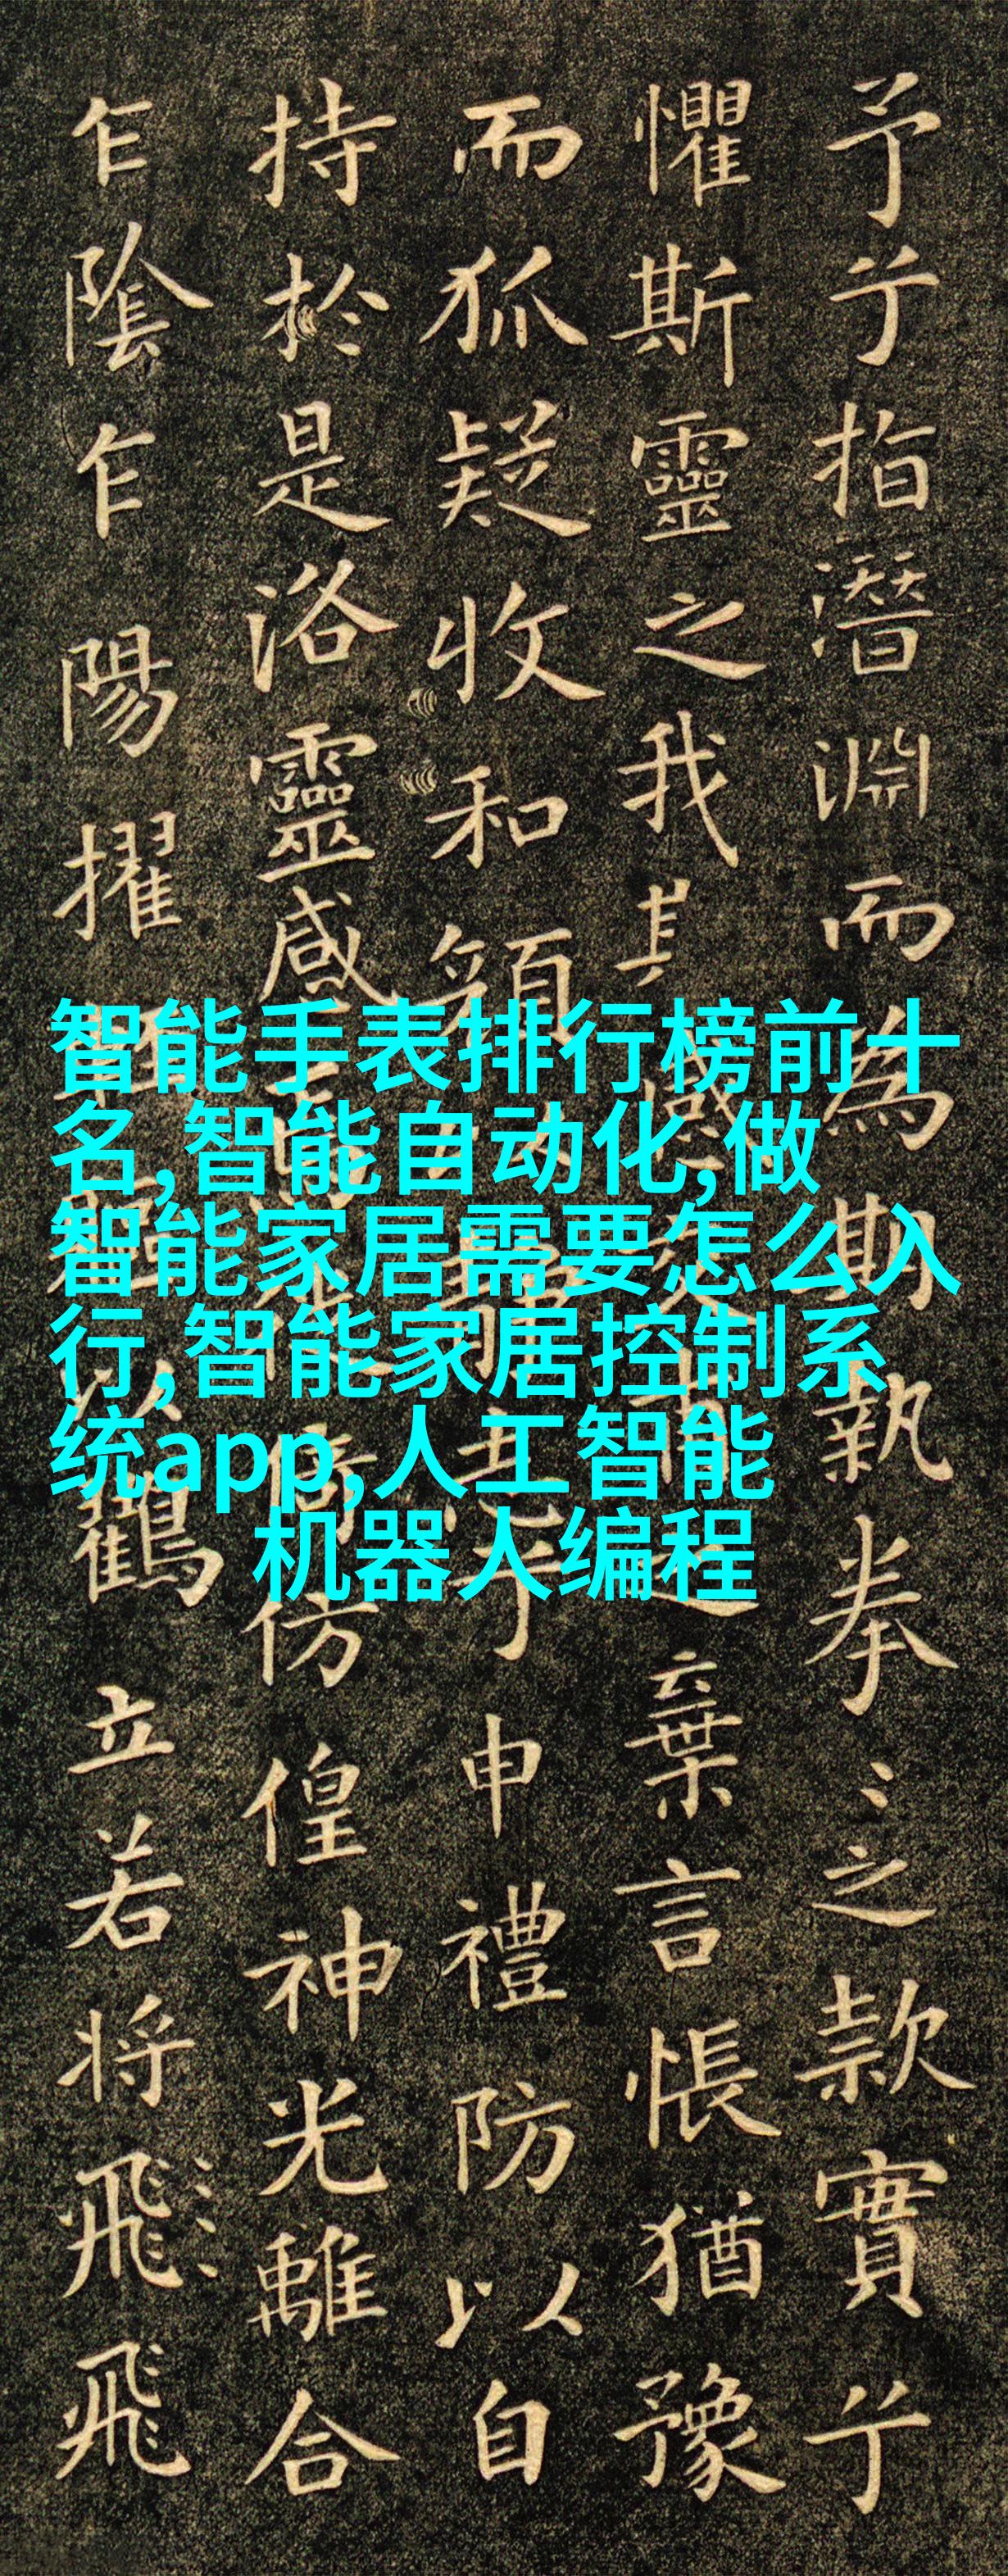 予兮指潛淵而為期執拳ミ之款實兮
懼斯靈之我感之棄言悵猶豫
而狐疑收和顏兮申禮防以自
持於是洛靈感仿偟神光離合
乍陰乍陽擢鶴立若将飛飛
智能手表排行榜前十
名,智能自动化,做
智能家居需要怎么入
行,智能家居控制系
统app,人工智能
机器人编程